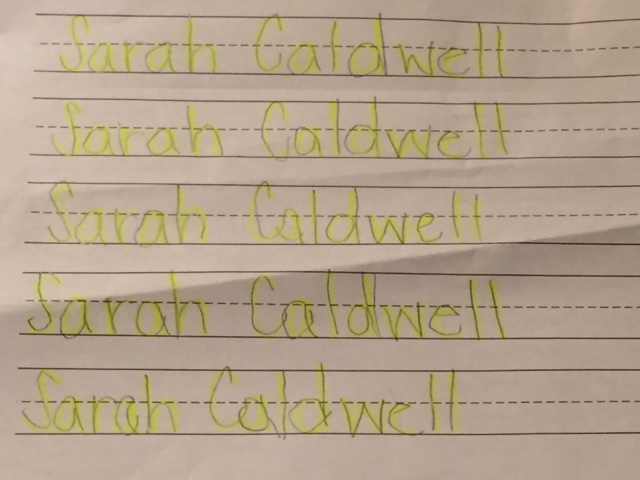 Sarah Caldwell
Sarah Caldwell
Sarah Caldwell
Sarah Caldwell
Sarah Caldwell